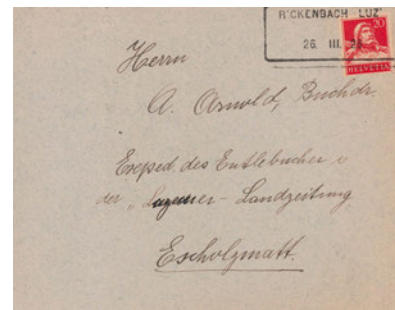 RICKENBACH LUZ
26. III.
20
HELVETIA
Herrn
A. Arnold, Buchdr.
Exped. des Entlebucher
der „Luzerner-Landzeitung
Escholzmatt.